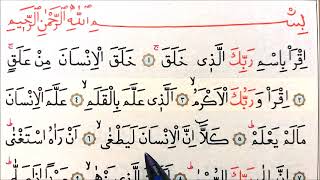 بِسْمِ اللّٰهِ الرَّحْمٰنِ الرَّحِيمِ
اِقْرَأْ بِاسْمِ رَبِّكَ الَّذ۪ي خَلَقَۚ ﴿١﴾ خَلَقَ الْاِنْسَانَ مِنْ عَلَقٍۚ
﴿٢﴾ اِقْرَأْ وَرَبُّكَ الْاَكْرَمُۙ ﴿٣﴾ اَلَّذ۪ي عَلَّمَ بِالْقَلَمِۙ ﴿٤﴾ عَلَّمَ الْاِنْسَانَ
مَالَمْ يَعْلَمْۜ ﴿٥﴾ كَلَّٓا اِنَّ الْاِنْسَانَ لَيَطْغٰىۙ ﴿٦﴾ اَنْ رَاٰهُ اسْتَغْنٰىۜ